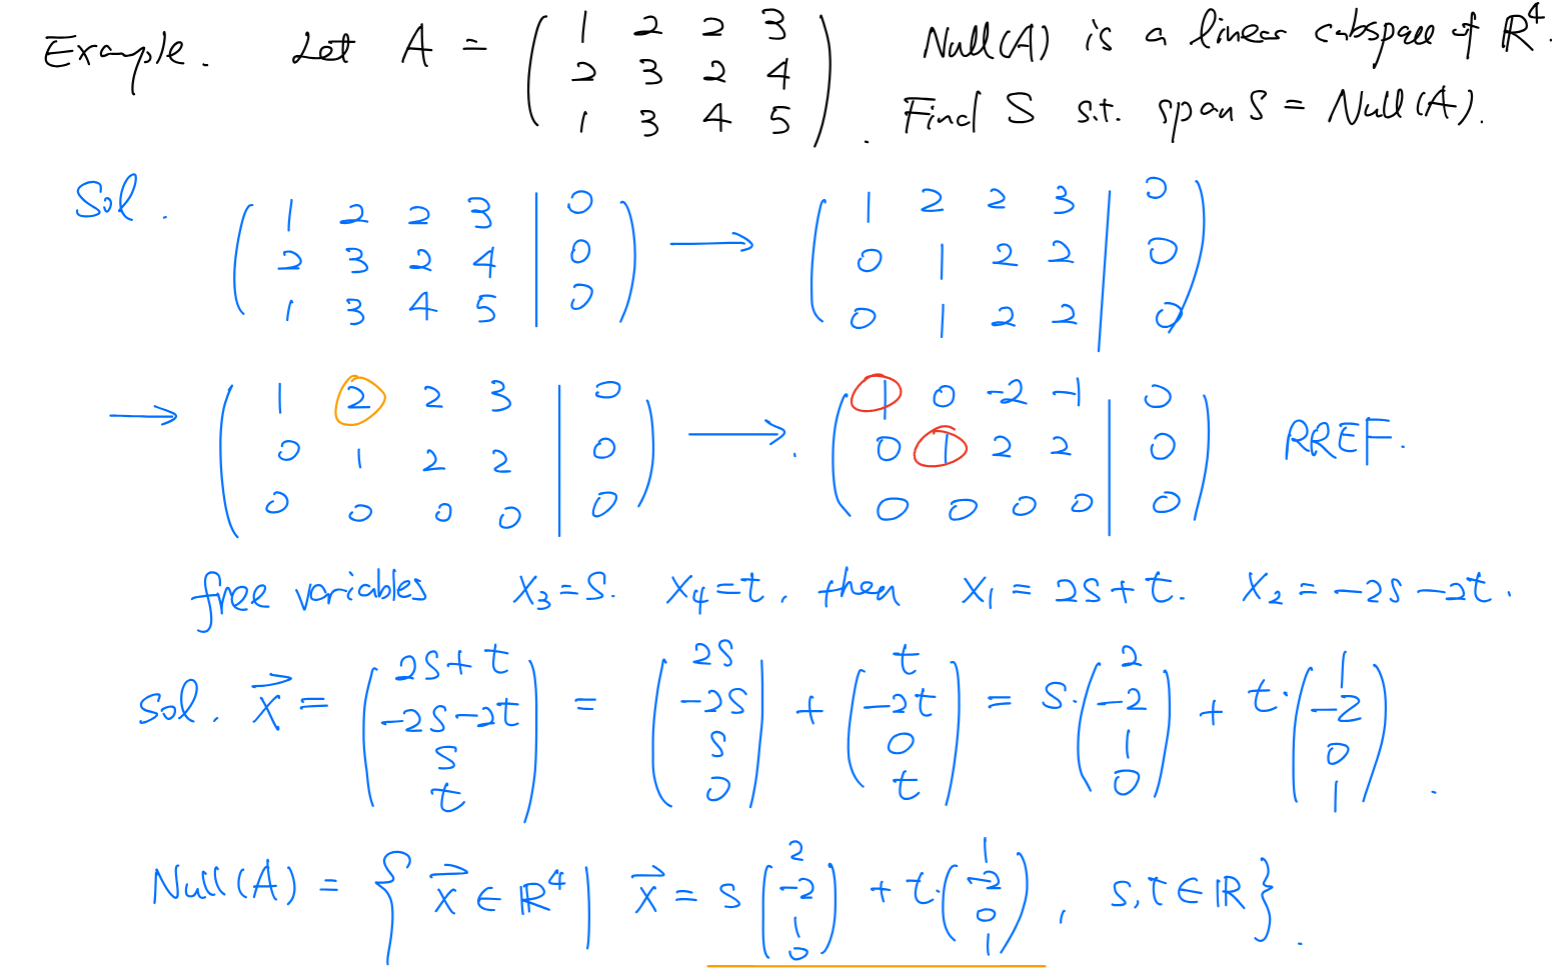 Example. Let A = ( 1 2 2 3 ; 2 3 2 4 ; 1 3 4 5 ). Null(A) is a linear subspace of R⁴.
Find S s.t. span S = Null(A).
Sol. ( 1 2 2 3 | 0 ; 2 3 2 4 | 0 ; 1 3 4 5 | 0 ) → ( 1 2 2 3 | 0 ; 0 1 2 2 | 0 ; 0 1 2 2 | 0 )
→ ( 1 2 2 3 | 0 ; 0 1 2 2 | 0 ; 0 0 0 0 | 0 ) →. ( 1 0 -2 -1 | 0 ; 0 1 2 2 | 0 ; 0 0 0 0 | 0 ) RREF.
free variables x₃=s. x₄=t, then x₁ = 2s+t. x₂ = -2s-2t.
Sol. x⃗ = ( 2s+t ; -2s-2t ; s ; t ) = ( 2s ; -2s ; s ; 0 ) + ( t ; -2t ; 0 ; t ) = s·( 2 ; -2 ; 1 ; 0 ) + t·( 1 ; -2 ; 0 ; 1 ).
Null(A) = { x⃗ ∈ R⁴ | x⃗ = s ( 2 ; -2 ; 1 ; 0 ) + t·( 1 ; -2 ; 0 ; 1 ), s,t ∈ R }.